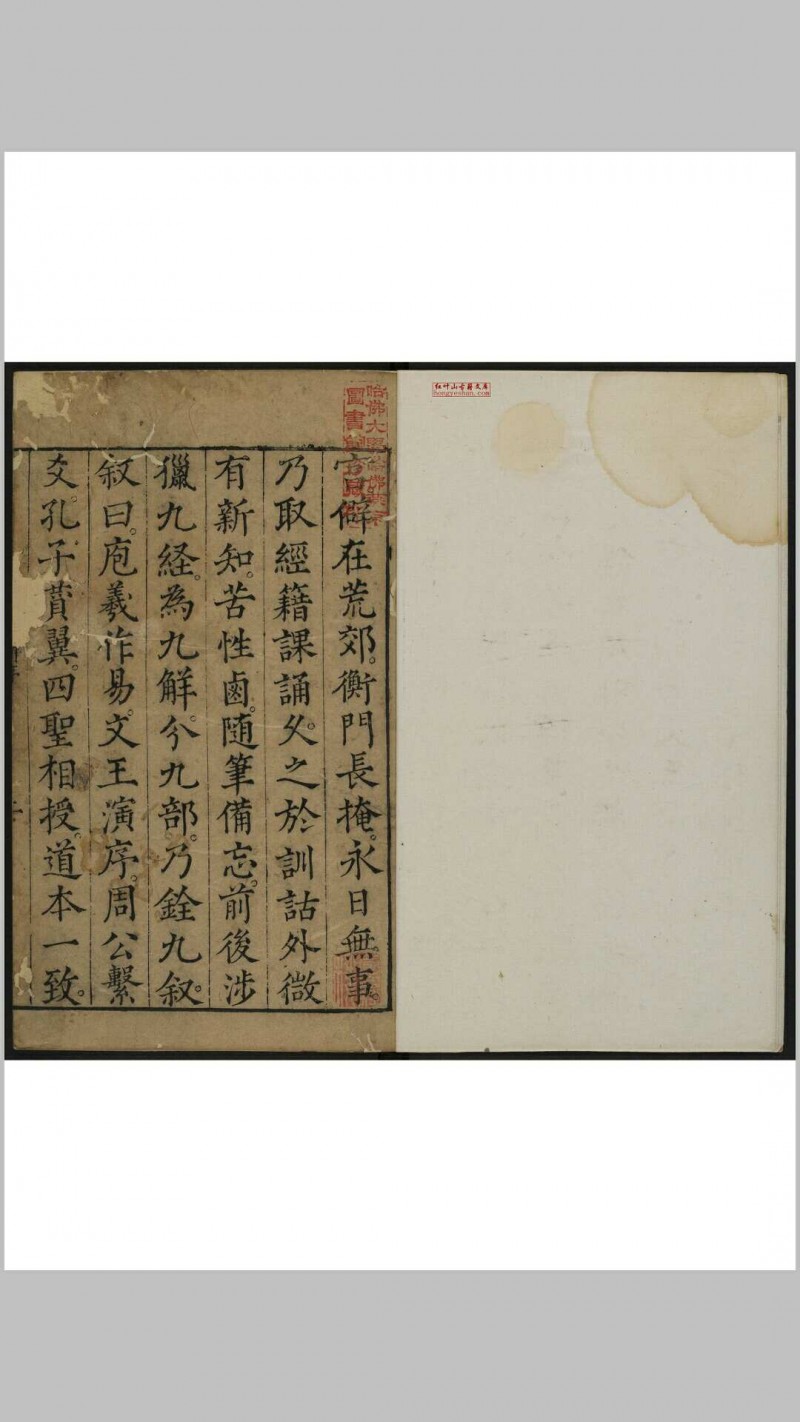 官貝僻在荒郊。衡門長掩。永日無事。
乃取經籍課誦。久之於訓詁外微
有新知。苦性鹵。随筆備忘。前後涉
獵九経。為九解。分九部。乃銓九叙。
叙曰。庖羲作易。文王演序。周公繫
爻。孔子賛翼。四聖相授。道本一致。
哈佛大
圖書
红叶山古籍文库
hongyeshan.com